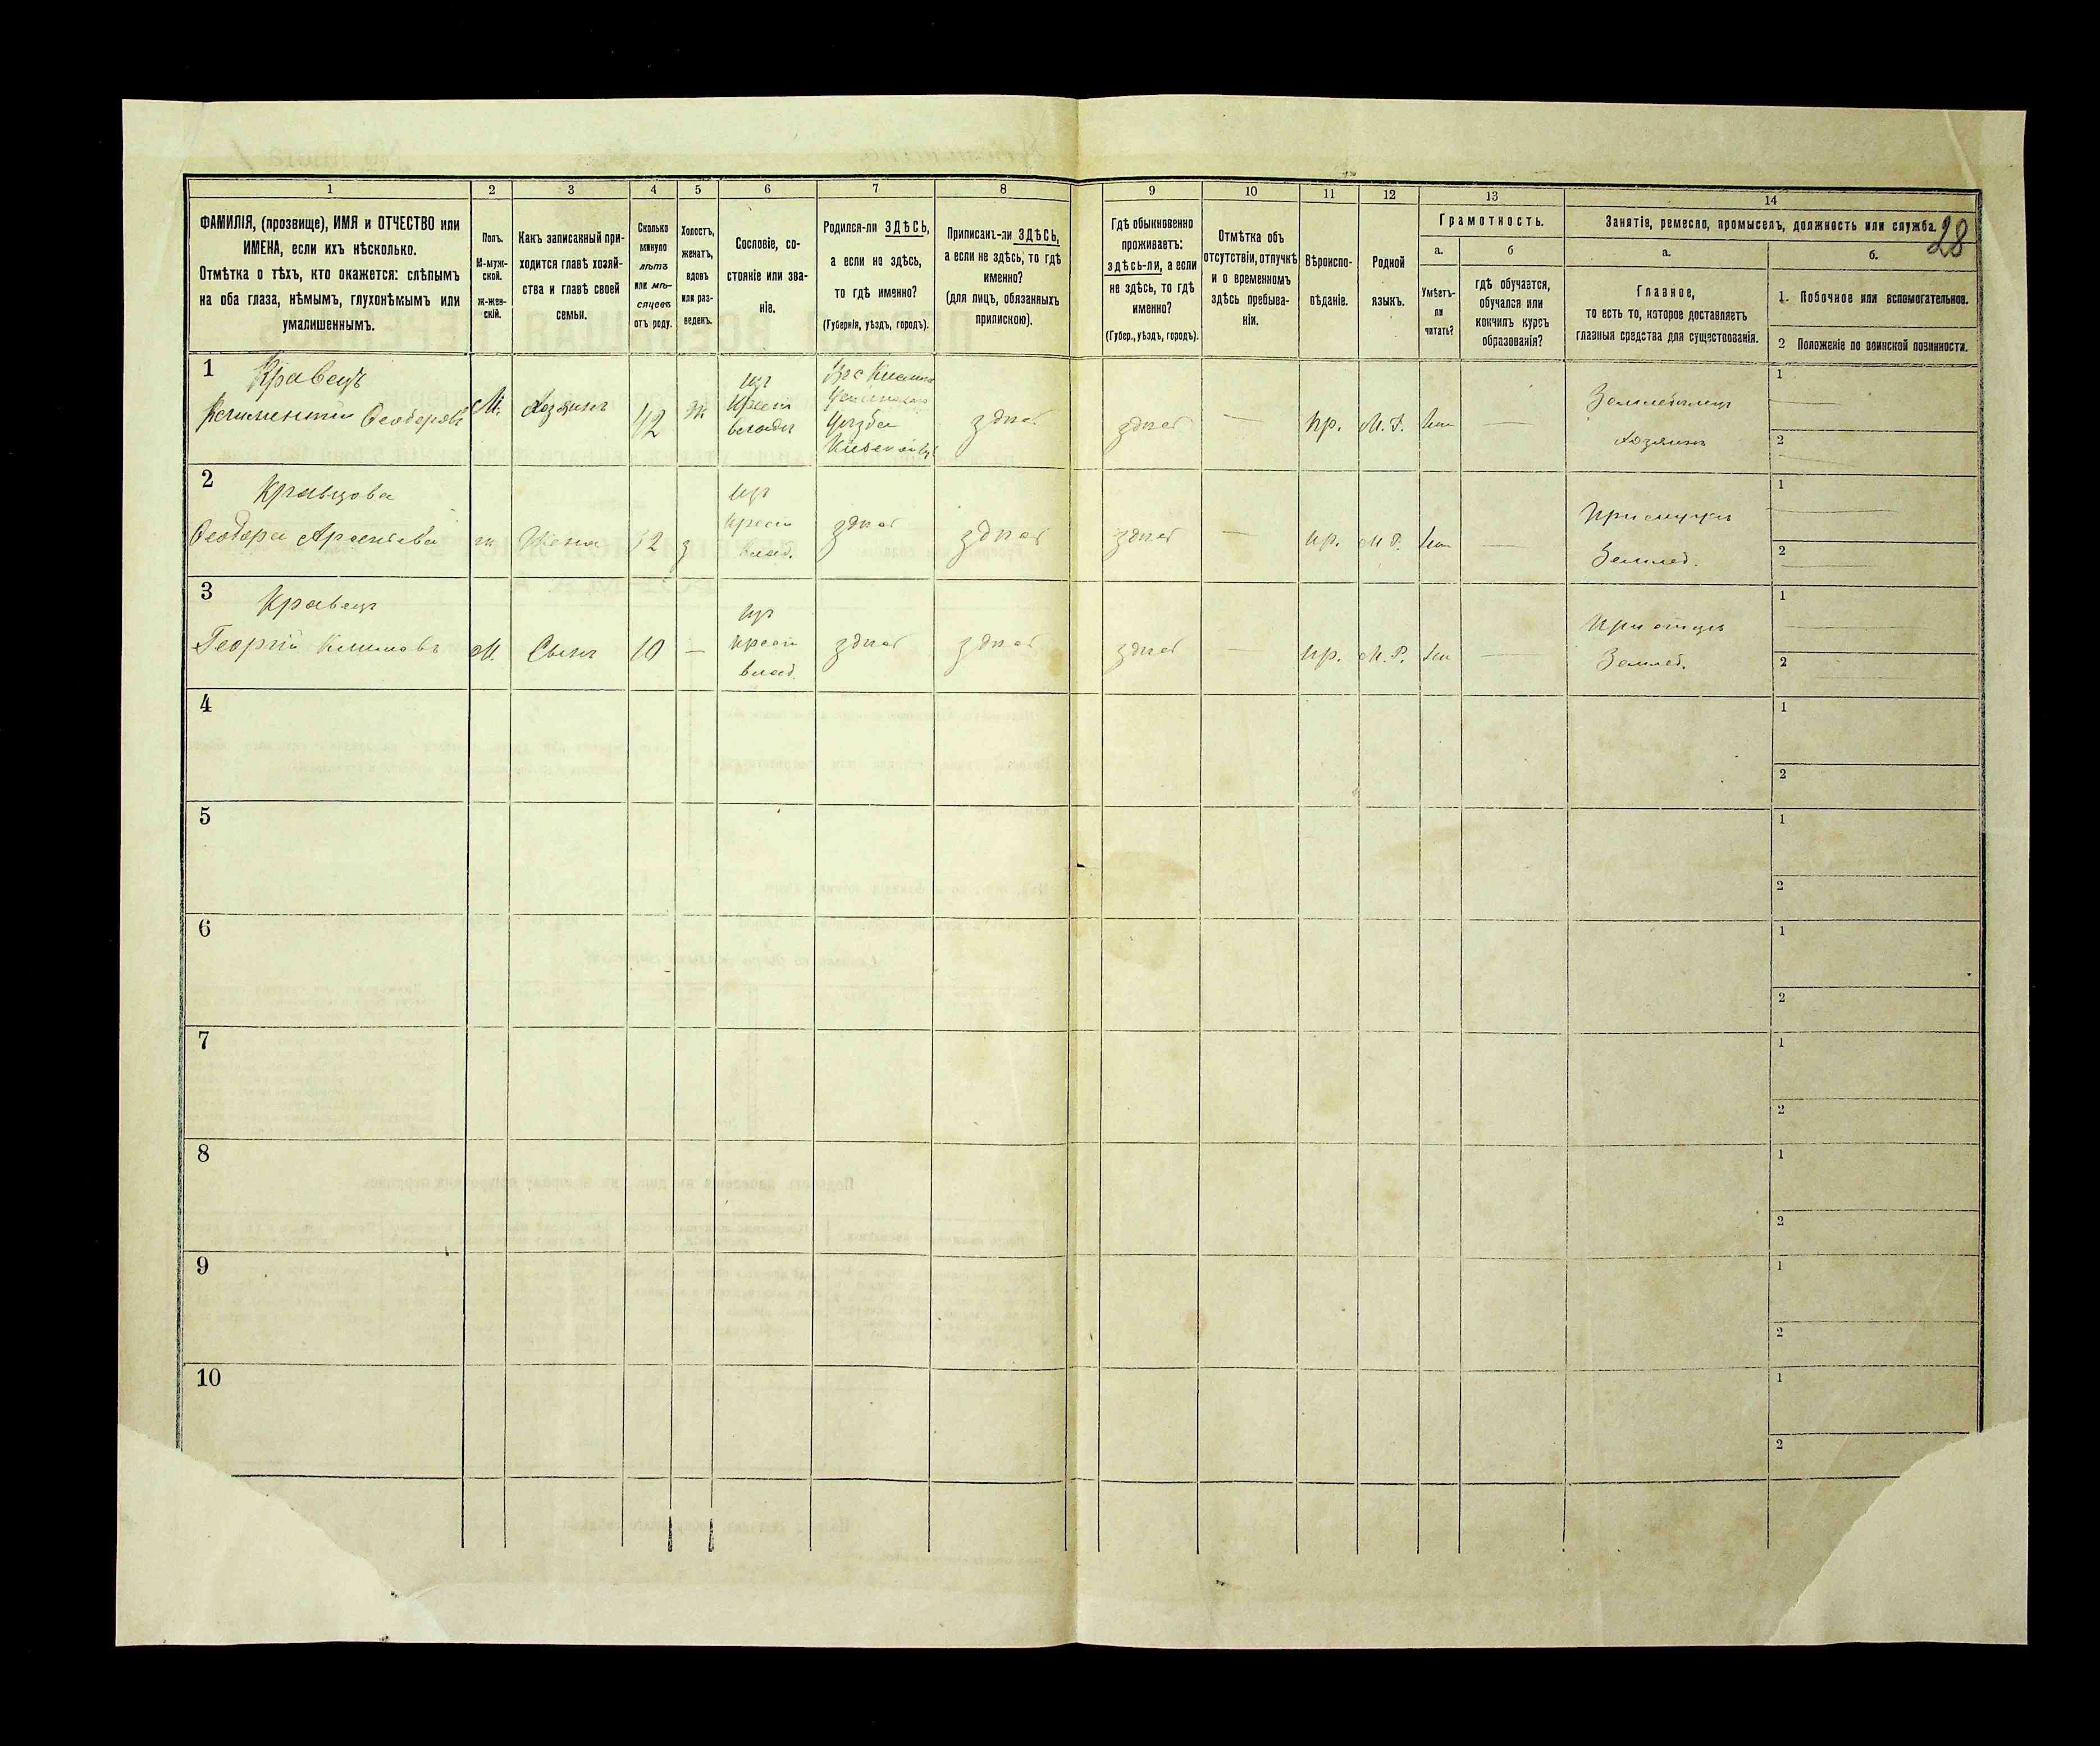 1 2 3 4 5 6 7 8 9 10 11 12 13 14
ФАМИЛІЯ, (прозвище), ИМЯ и ОТЧЕСТВО или
ИМЕНА, если ихъ нѣсколько.
Отмѣтка о тѣхъ, кто окажется: слѣпымъ
на оба глаза, нѣмымъ, глухонѣмымъ или
умалишеннымъ.
Полъ.
М-муж-
ской.
ж-жен-
скій.
Какъ записанный при-
ходится главѣ хозяй-
ства и главѣ своей
семьи.
Сколько
минуло
лѣтъ
или мѣ-
сяцевъ
отъ роду.
Холостъ,
женатъ,
вдовъ
или раз-
веденъ.
Сословіе, со-
стояніе или зва-
ніе.
Родился-ли ЗДѢСЬ,
а если не здѣсь,
то гдѣ именно?
(Губернія, уѣздъ, городъ).
Приписанъ-ли ЗДѢСЬ,
а если не здѣсь, то гдѣ
именно?
(для лицъ, обязанныхъ
припискою).
Гдѣ обыкновенно
проживаетъ:
здѣсь-ли, а если
не здѣсь, то гдѣ
именно?
(Губер., уѣздъ, городъ).
Отмѣтка объ
отсутствіи, отлучкѣ
и о временномъ
здѣсь пребыва-
ніи.
Вѣроиспо-
вѣданіе.
Родной
языкъ.
Грамотность.
а.
Умѣетъ-
ли
читать?
б
гдѣ обучается,
обучался или
кончилъ курсъ
образованія?
Занятія, ремесло, промыселъ, должность или служба.
28
а.
Главное,
то есть то, которое доставляетъ
главныя средства для существованія.
б.
1. Побочное или вспомогательное.
2 Положеніе по воинской повинности.
1
Кравецъ
Климентій Ѳеодоровъ
М.
Хозяинъ
42
ж
изъ
крест
владъ
уѣзда
здѣсь
здѣсь
—
пр.
М. Р.
—
Земледѣлецъ
хозяинъ
1
2
2
Кравцова
Ѳеодора Арсеньева
ж
Жена
з
изъ
крест
влад.
здѣсь
здѣсь
здѣсь
—
пр.
М. Р.
—
При мужѣ
Землед.
1
2
3
Кравецъ
Георгій Климовъ
М.
Сынъ
10
—
изъ
крест
влад.
здѣсь
здѣсь
здѣсь
—
пр.
М. Р.
—
При отцѣ
Землед.
1
2
4
1
2
5
1
2
6
1
2
7
1
2
8
1
2
9
1
2
10
1
2